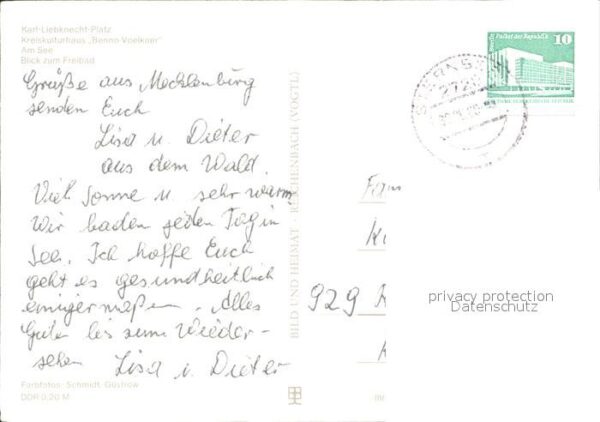 Karl-Liebknecht-Platz
Kreiskulturhaus "Benno Voelkner"
Am See
Blick zum Freibad
Grüße aus Mecklenburg
senden Euch
Lisa u. Dieter
aus dem Wald.
Viel Sonne u. sehr warm
Wir baden jeden Tag in
See. Ich hoffe Euch
geht es gesundheitlich
einigermaßen. Alles
Gute bis zum Wieder-
sehen Lisa u. Dieter
Farbfotos: Schmidt, Güstrow
DDR 0,20 M
BILD UND HEIMAT REICHENBACH (VOGTL)
Palast der Republik
10
Berlin
Fam
929
privacy protection
Datenschutz